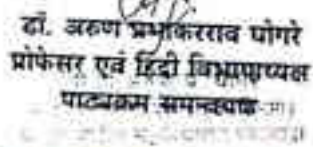 डॉ. अरुण प्रभाकरराव घोगरे
प्रोफेसर एवं हिंदी विभागाध्यक्ष
पाठ्यक्रम समन्वयक